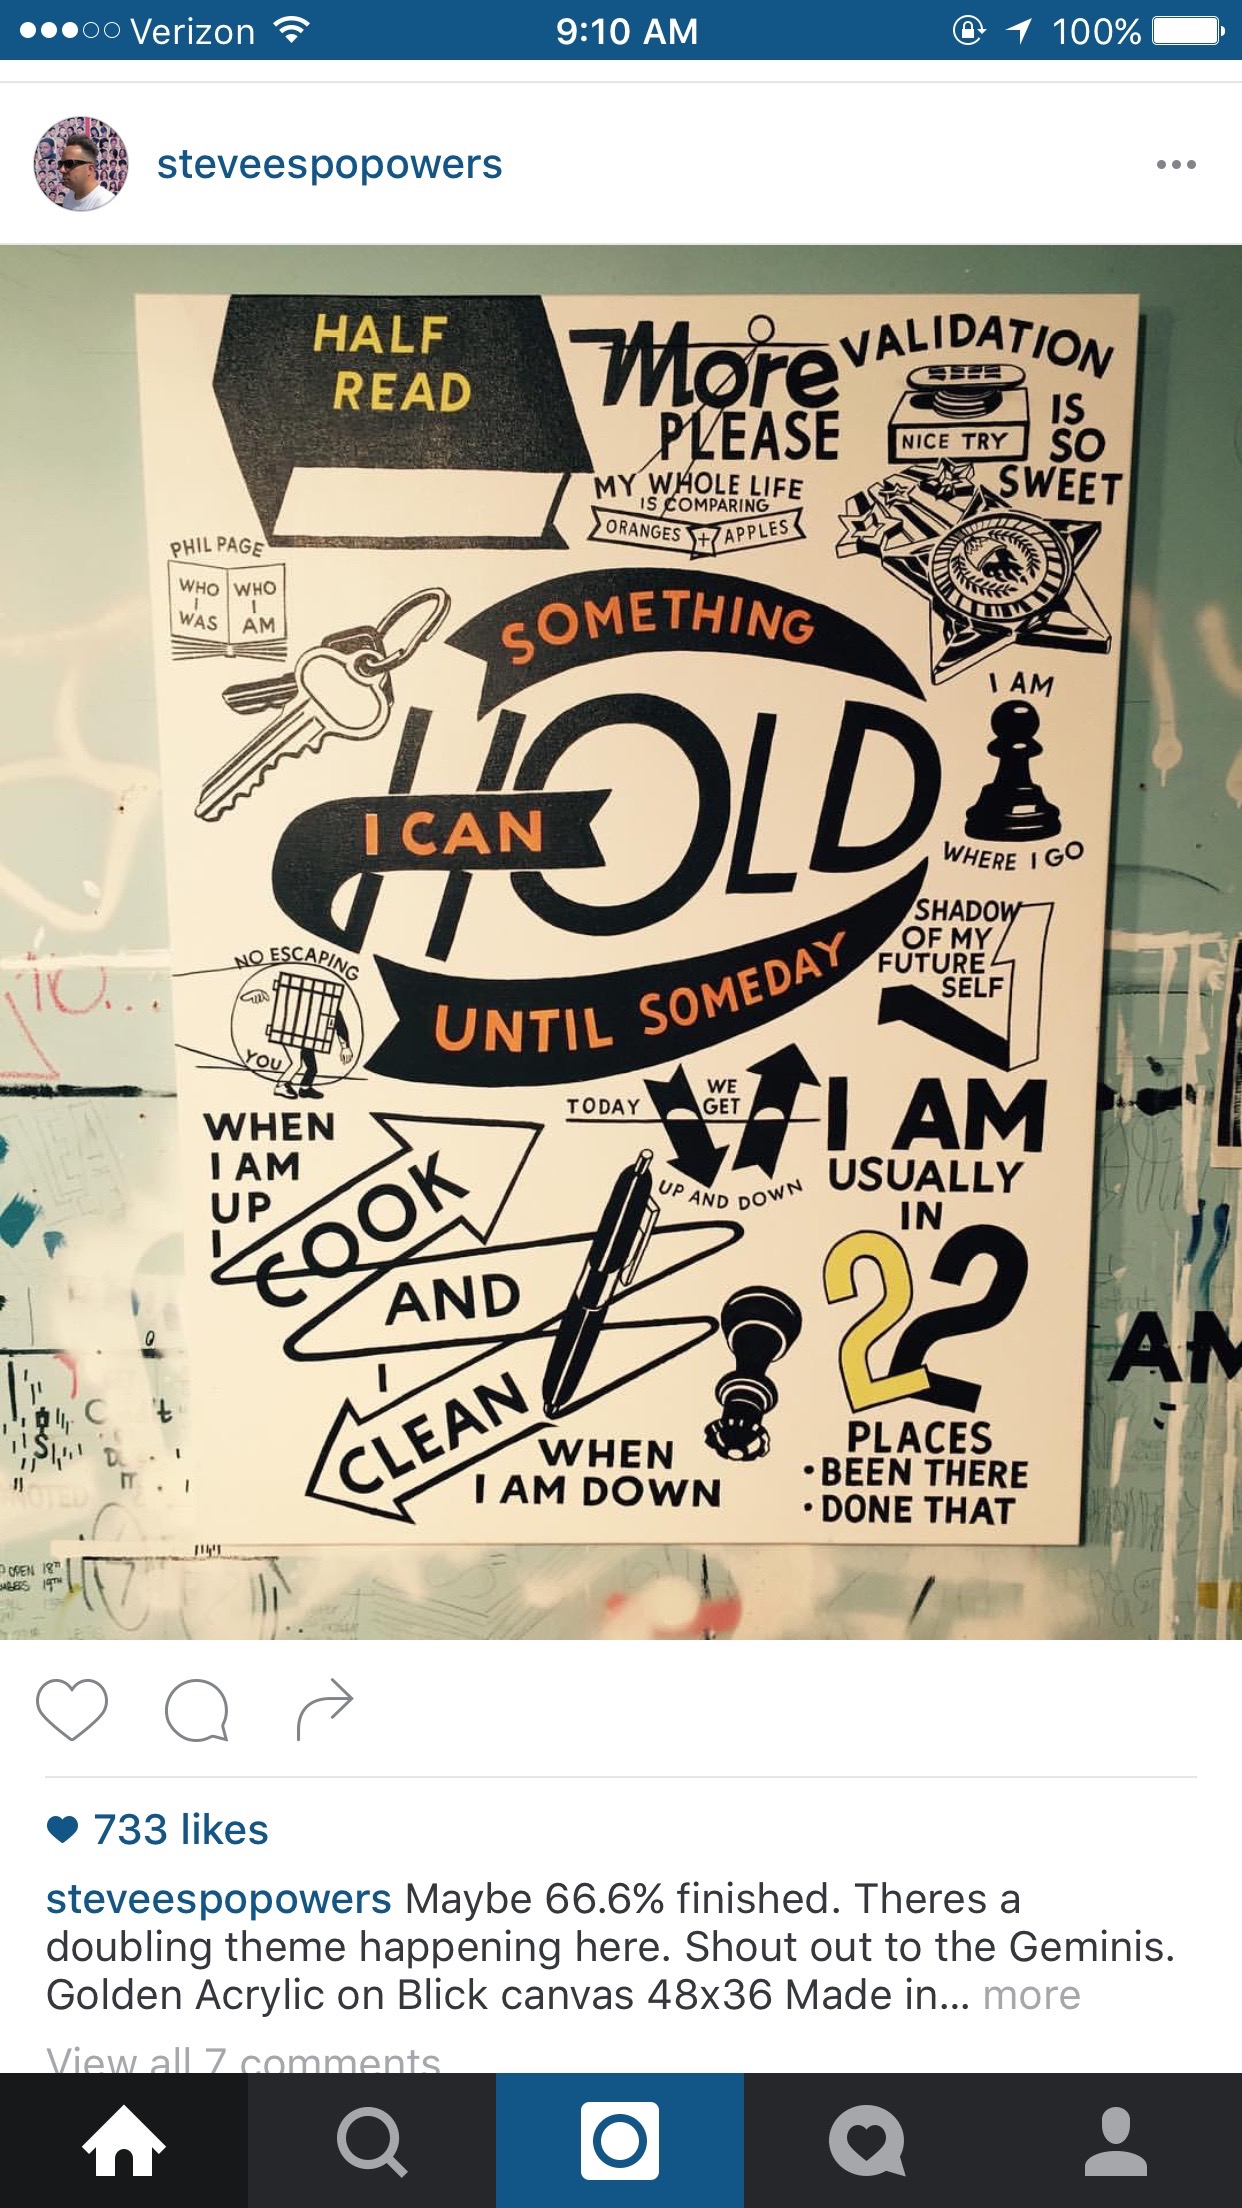 Verizon
9:10 AM
100%
steveespopowers
HALF
READ
More
PLEASE
MY WHOLE LIFE
IS COMPARING
ORANGES + APPLES
VALIDATION
IS
SO
SWEET
NICE TRY
PHIL PAGE
WHO
I
WAS
WHO
I
AM
SOMETHING
I CAN
HOLD
UNTIL SOMEDAY
I AM
WHERE I GO
SHADOW
OF MY
FUTURE
SELF
NO ESCAPING
YOU
TODAY
WE
GET
UP AND DOWN
WHEN
I AM
UP
I
COOK
AND
I
CLEAN
WHEN
I AM DOWN
I AM
USUALLY
IN
22
PLACES
• BEEN THERE
• DONE THAT
AM
733 likes
steveespopowers Maybe 66.6% finished. Theres a
doubling theme happening here. Shout out to the Geminis.
Golden Acrylic on Blick canvas 48x36 Made in... more
View all 7 comments